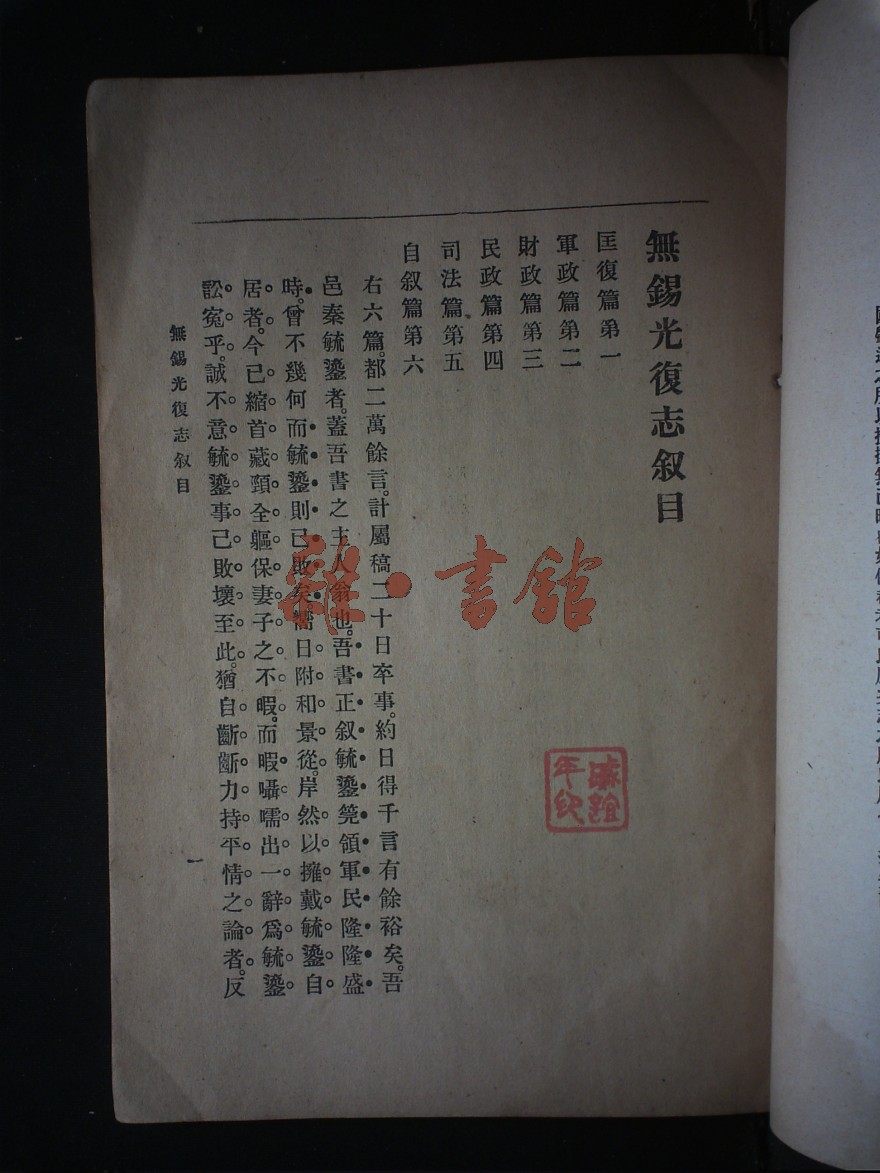 無錫光復志叙目
匡復篇第一
軍政篇第二
財政篇第三
民政篇第四
司法篇第五
自叙篇第六
右六篇。都二萬餘言。計屬稿二十日卒事。約日得千言有餘裕矣。吾
邑秦毓鎏者。蓋吾書之主人翁也。吾書正叙毓鎏筦領軍民隆隆盛
時。曾不幾何而毓鎏則已敗矣。嚮日附和景從。岸然以擁戴毓鎏自
居者。今已縮首藏頸全軀保妻子之不暇。而暇囁嚅出一辭爲毓鎏
訟寃乎。誠不意毓鎏事已敗壞至此。猶自齗齗力持平情之論者。反
無錫光復志叙目
一
雜·書館